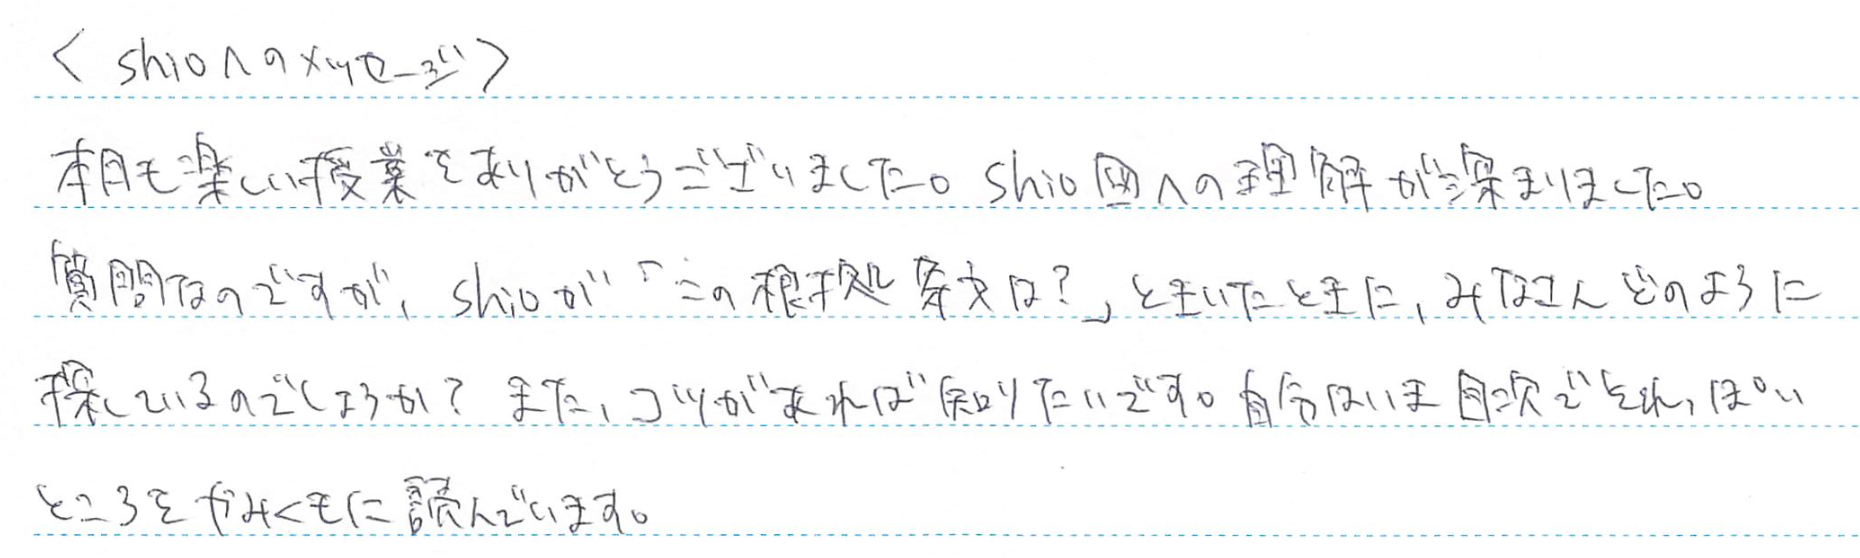 ＜shioへのメッセージ＞
本日も楽しい授業をありがとうございました。shio図への理解が深まりました。
質問なのですが、shioが「この根拠条文は？」ときいたときに、みなさんどのように
探しているのでしょうか？また、コツがあれば知りたいです。自分はいま目次でそれっぽい
ところをやみくもに読んでいます。